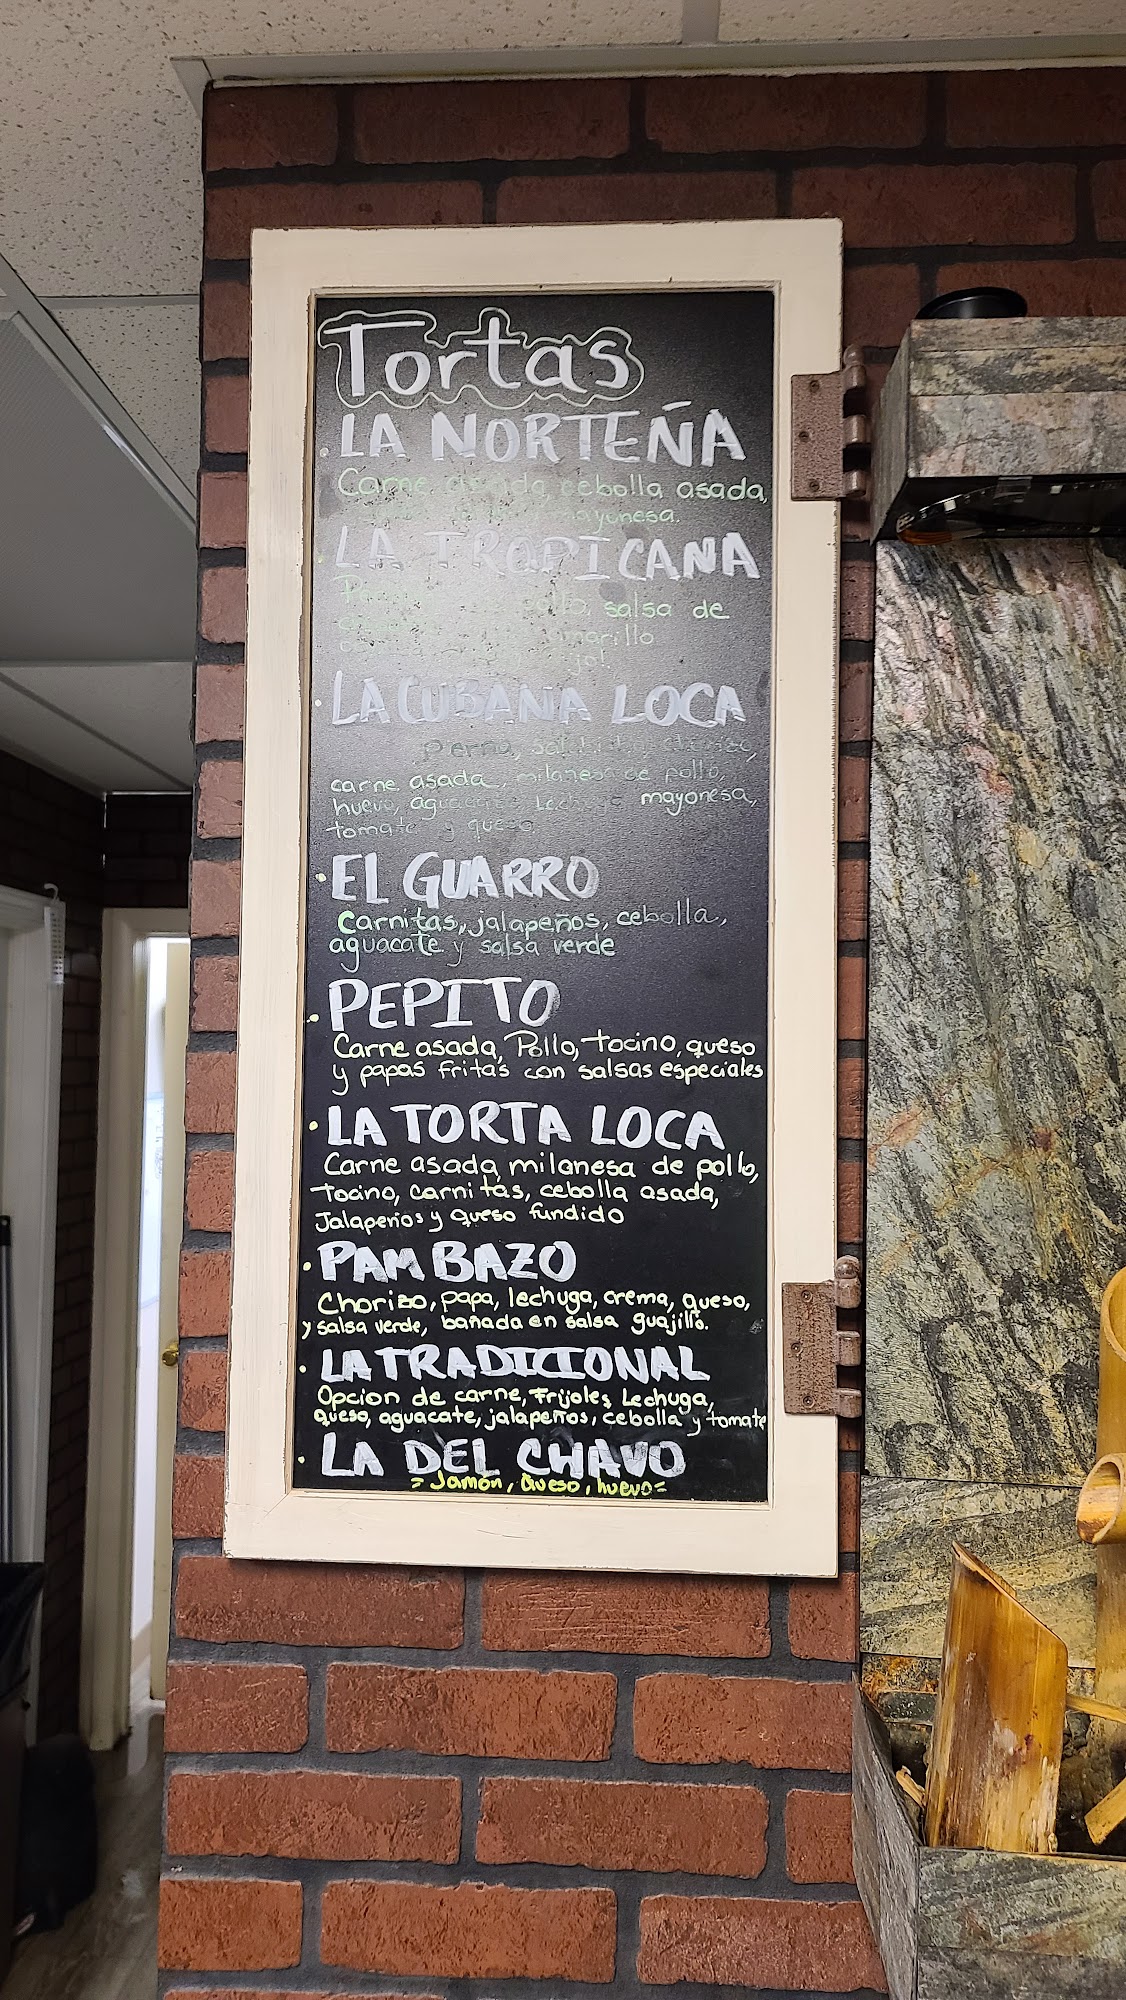 Tortas
LA NORTEÑA
Carne asada, cebolla asada,
mayonesa.
LA TROPICANA
pollo, salsa de
amarillo
LA CUBANA LOCA
pierna, salchicha, chorizo,
carne asada, milanesa de pollo,
huevo, aguacate, Lechuga mayonesa,
tomate y queso
EL GUARRO
Carnitas, jalapeños, cebolla,
aguacate y salsa verde
PEPITO
Carne asada, Pollo, tocino, queso
y papas fritas con salsas especiales
LA TORTA LOCA
Carne asada, milanesa de pollo,
Tocino, carnitas, cebolla asada,
Jalapeños y Queso fundido
PAMBAZO
Chorizo, papa, lechuga, crema, queso,
y salsa verde, bañada en salsa guajillo.
LA TRADICIONAL
Opcion de carne, Frijoles, Lechuga,
queso, aguacate, jalapeños, cebolla y tomate
LA DEL CHAVO
= Jamón, Queso, huevo =